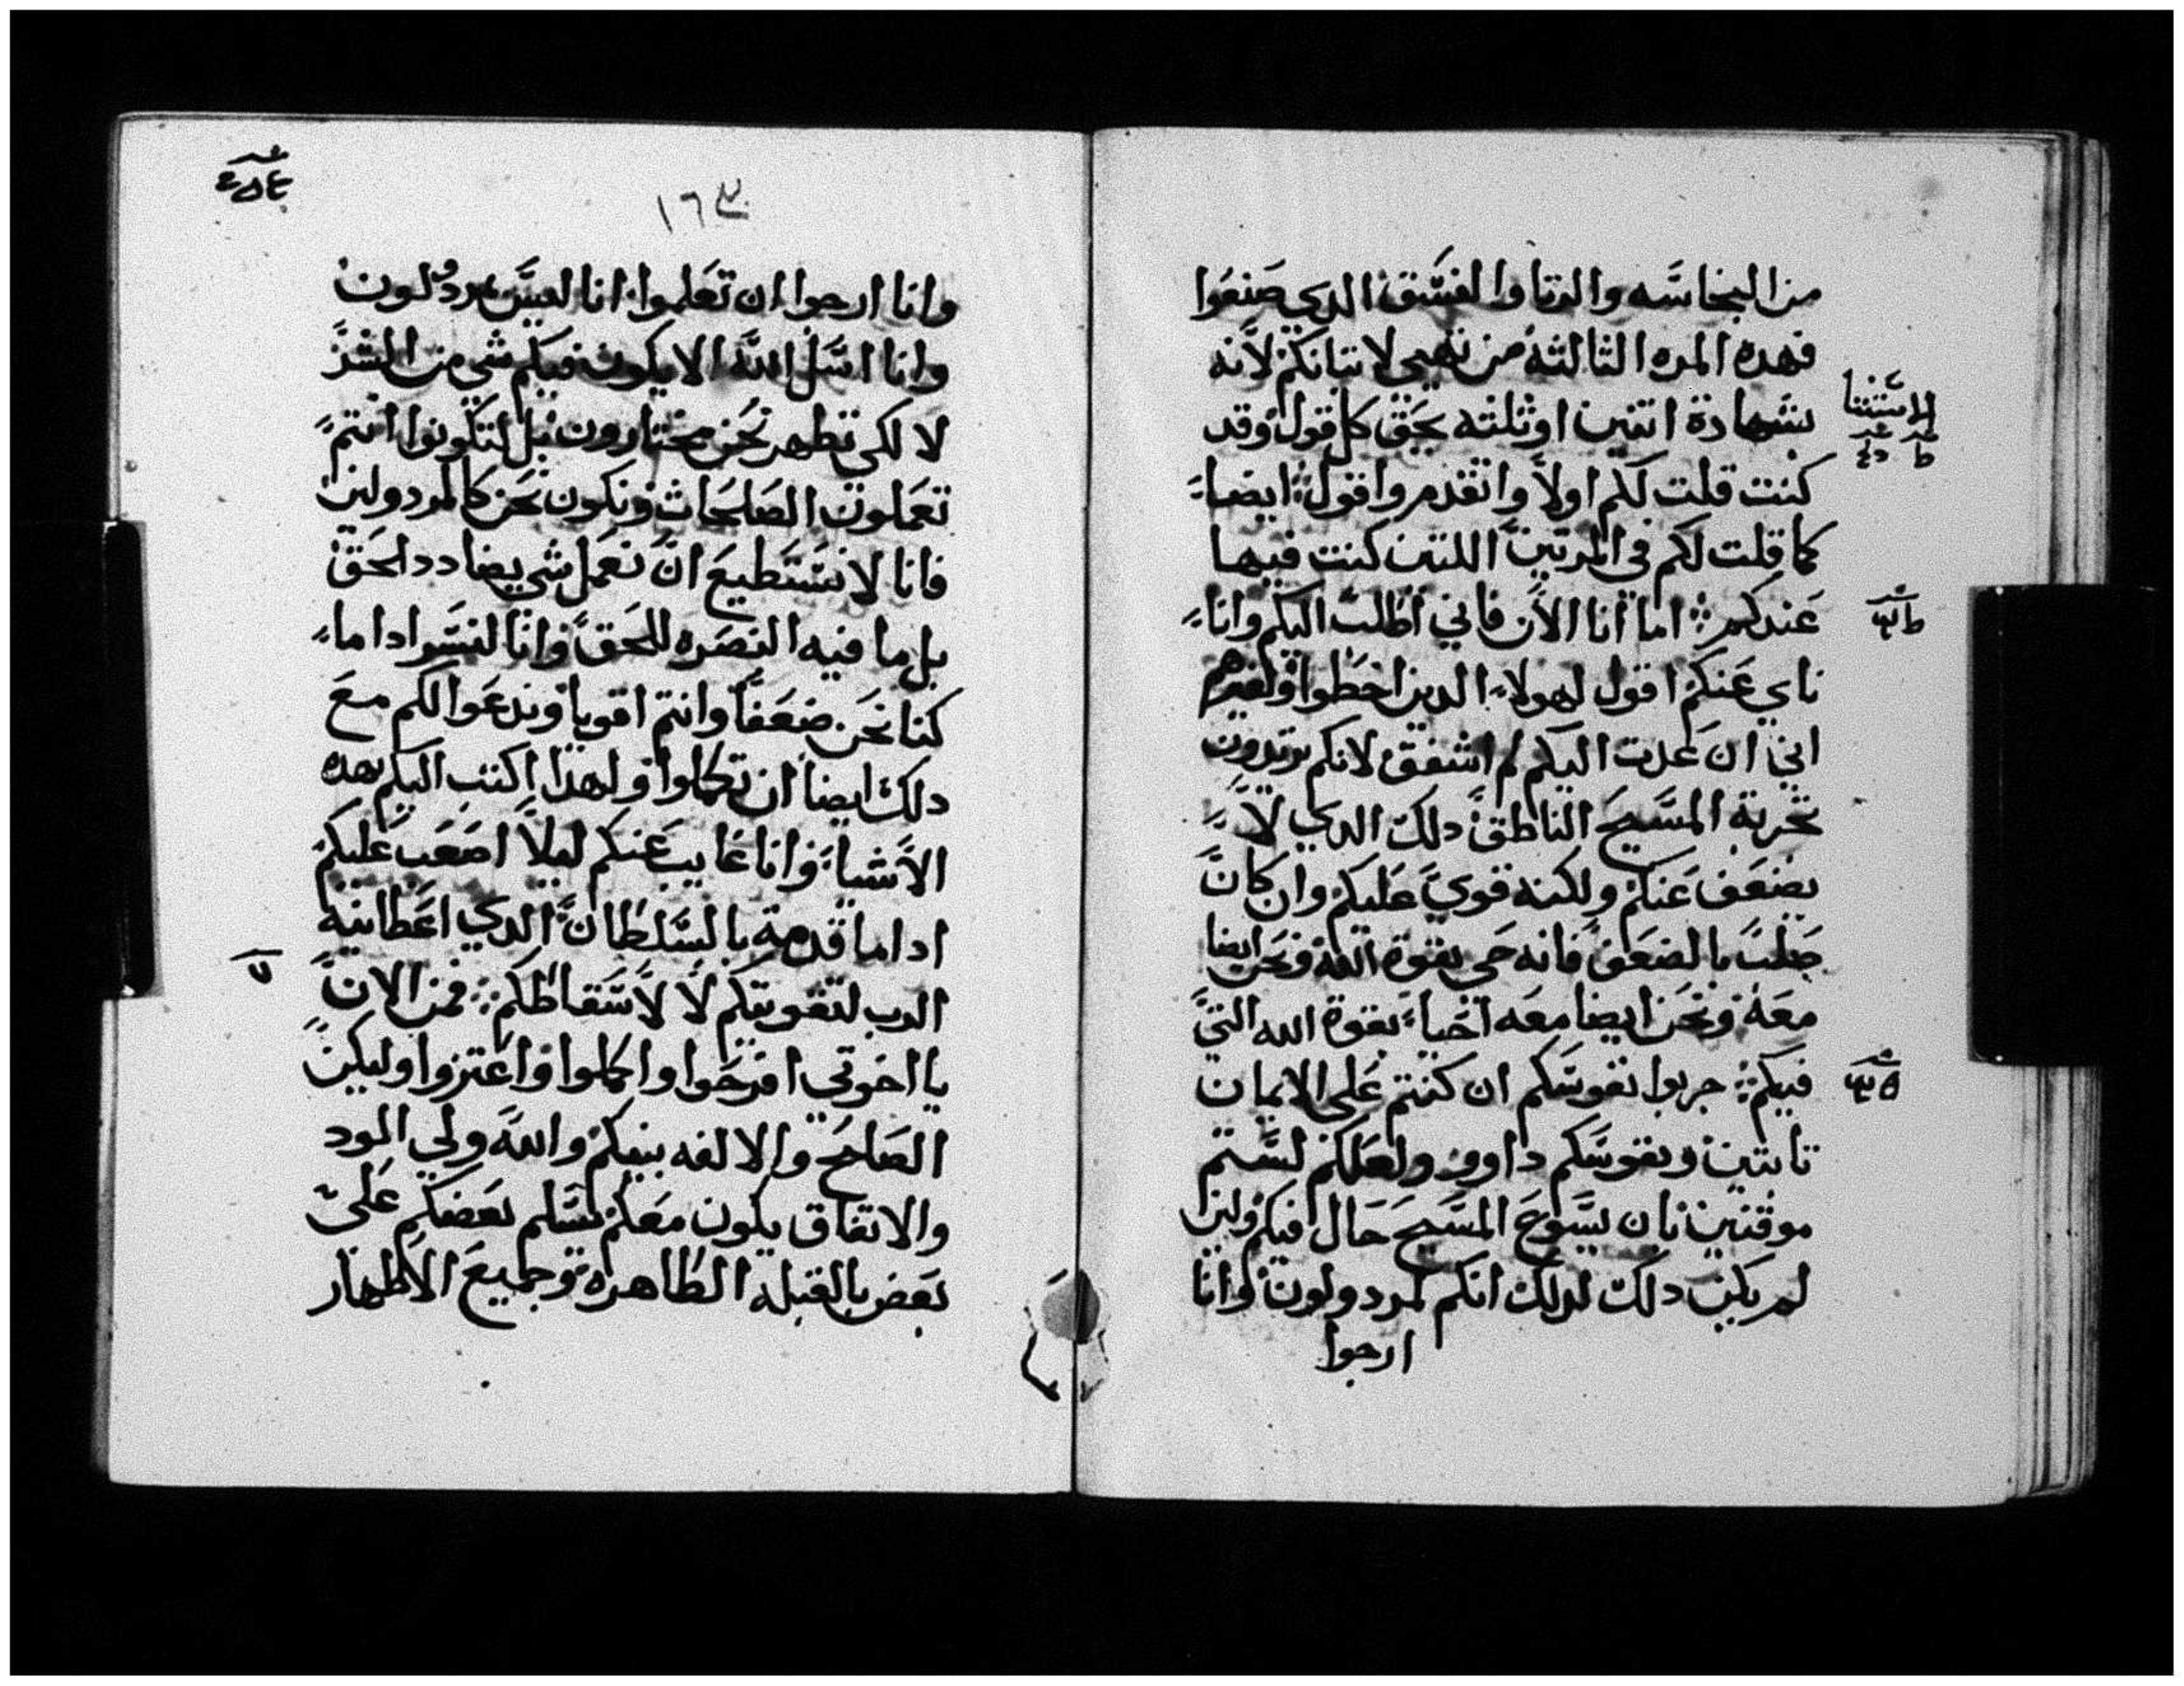 من النجاسه والزنا والفسق الدي صنعوا
فهده المره الثالثه من نهيي لاتيانكم لانه
بشهادة اتنين او ثلثه يحق كل قول وقد
كنت قلت لكم اولا واتقدم واقول ايضا
كما قلت لكم في المرتين اللتين كنت فيها
عندكم اما انا الان فاني اطلت اليكم وانا
ناي عنكم اقول لهولاء الدين اخطوا ولغيرهم
اني ان عدت اليكم لم اشفق لانكم تريدون
تجربة المسيح الناطق دلك الدي لا
يضعف عنكم ولكنه قوي عليكم وان كان
صلب بالضعف فانه حي بقوة الله ونحن ايضا
معه ونحن ايضا معه احيا بقوة الله التي
فيكم جربوا نفوسكم ان كنتم على الايمان
تابتين ونفوسكم داووا ولعلكم لستم
موقنين بان يسوع المسيح حال فيكم ولين
لم يكن دلك لدلك انكم لمردولون وانا
ارجوا
الاستثنا
١٦٣
وانا ارجوا ان تعلموا انا لسن مردولون
وانا اسل الله الا يكون فيكم شي من الشر
لا لكي نظهر نحن مختارون بل لتكونوا انتم
تعملون الصلحات ونكون نحن كالمردولين
فانا لا نستطيع ان نعمل شي يضادد الحق
بل ما فيه النصره للحق وانا لنسر ادا ما
كنا نحن ضعفا وانتم اقويا وندعوا لكم مع
دلك ايضا ان تكملوا ولهدا اكتب اليكم بهده
الاشيا وانا غايب عنكم ليلا اصعب عليكم
ادا ما قدمة بالسلطان الدي اعطانيه
الرب لتقويتكم لا لاسقاطكم فمن الان
يا اخوتي افرحوا واكملوا واعتزوا وليكن
الصلح والالفه بينكم والله ولي المود
والاتفاق يكون معكم يسلم بعضكم على
بعض بالقبله الطاهره وجميع الاطهار